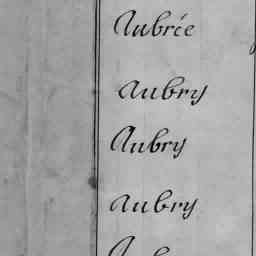 Aubrée
Aubry
Aubry
Aubry